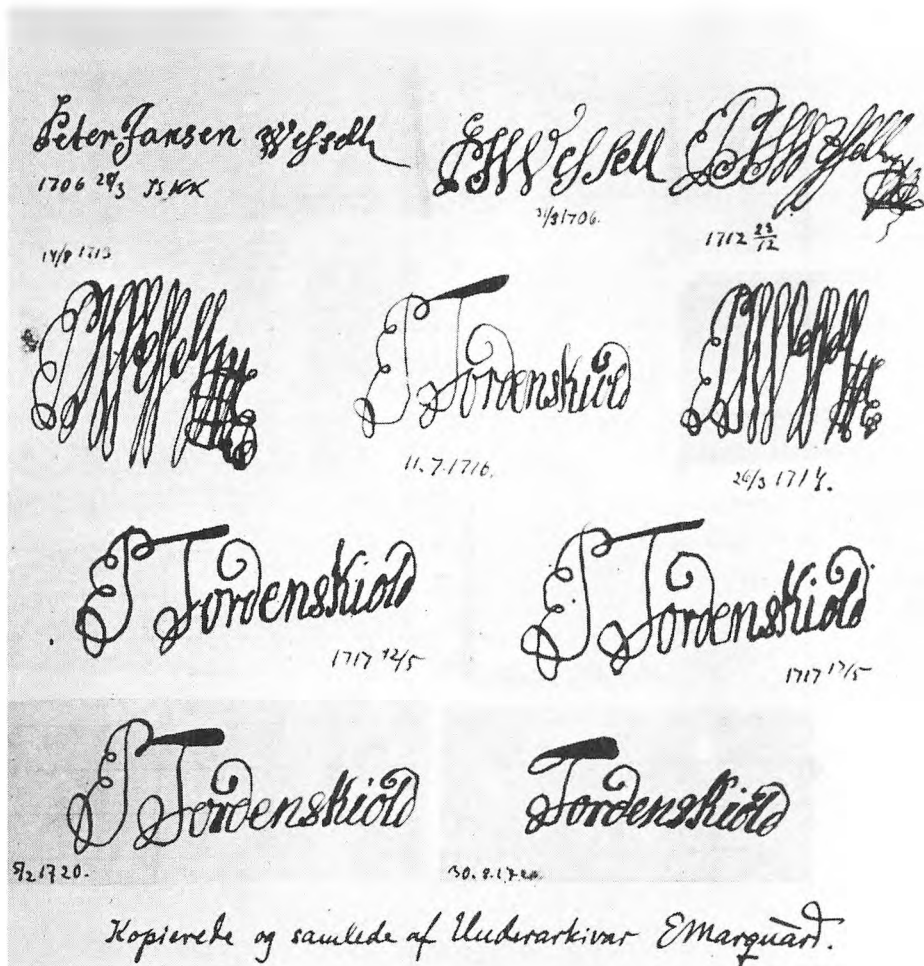 Peter Jansen Wessell
1706 29/3 JSKK
PJWWessell
31/3 1706.
PJWWessell
1712 23/12
14/8 1713
PJWessell
P Tordenskiold
11. 7. 1716.
PJWessell
26/3 1714.
P Tordenskiold
1717 12/5
P Tordenskiold
1717 17/5
P Tordenskiold
5/2 1720.
Tordenskiold
30. 8. 1720
Kopierede og samlede af Underarkivar E Marquard.